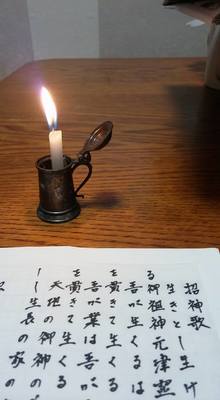 招神歌
生きとし生け
る御祖神元津霊
吾が生くるは
を貫きて生くる
吾が業は吾が
を貫きて生くる
天地の御神の
しし生長の家の